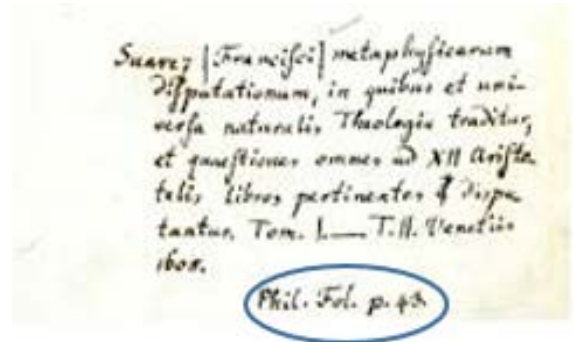 Suarez [Francisci] metaphysicarum
disputationum, in quibus et uni-
versa naturalis Theologia traditur,
et quaestiones omnes ad XII Aristo
telis libros pertinentes dispu
tantur. Tom. I.— T.II. Venetiis
1608.
Phil. Fol. p. 43.